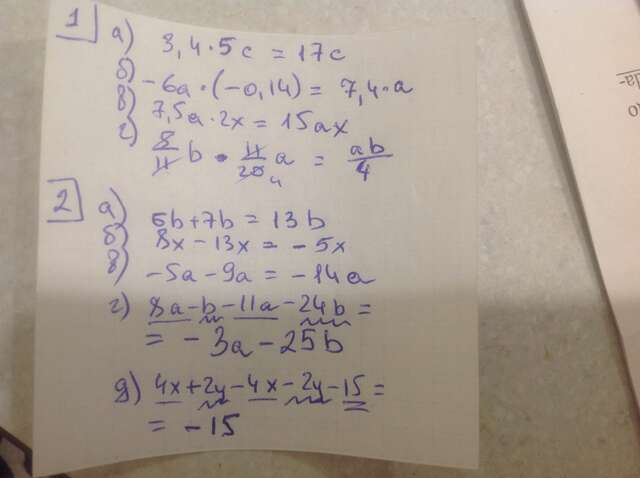 1 а) 3,4·5c = 17c
б) -6a·(-0,14) = 7,4·a
в) 7,5a·2x = 15ax
г) 8/11 b · 11/20 4 a = ab/4
2 а) 6b+7b = 13b
б) 8x-13x = -5x
в) -5a-9a = -14a
г) 8a-b-11a-24b =
= -3a-25b
д) 4x+2y-4x-2y-15 =
= -15
да-
о